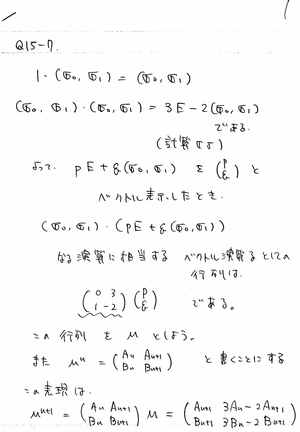 Q15-7.
1・(σ₀, σ₁) = (σ₀, σ₁)
(σ₀, σ₁)・(σ₀, σ₁) = 3E - 2(σ₀, σ₁)
である.
(計算せよ)
よって. pE + q(σ₀, σ₁) を (p q) と
ベクトル表示したとき.
(σ₀, σ₁)・(pE + q(σ₀, σ₁))
なる演算に相当する ベクトル演算としての
行列は.
(0 3 1 -2)(p q) である。
この行列を M としよう.
また Mⁿ = (An An+1 Bn Bn+1) と書くことにする
この表現は.
Mⁿ⁺¹ = (An An+1 Bn Bn+1) M = (An+1 3An - 2An+1 Bn+1 3Bn - 2Bn+1)